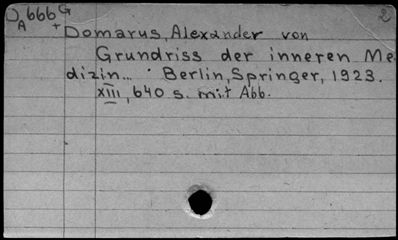 666 G 2
A +
Domarus, Alexander von
Grundriss der inneren Me
dizin... Berlin, Springer, 1923.
XIII, 640 s. mit Abb.